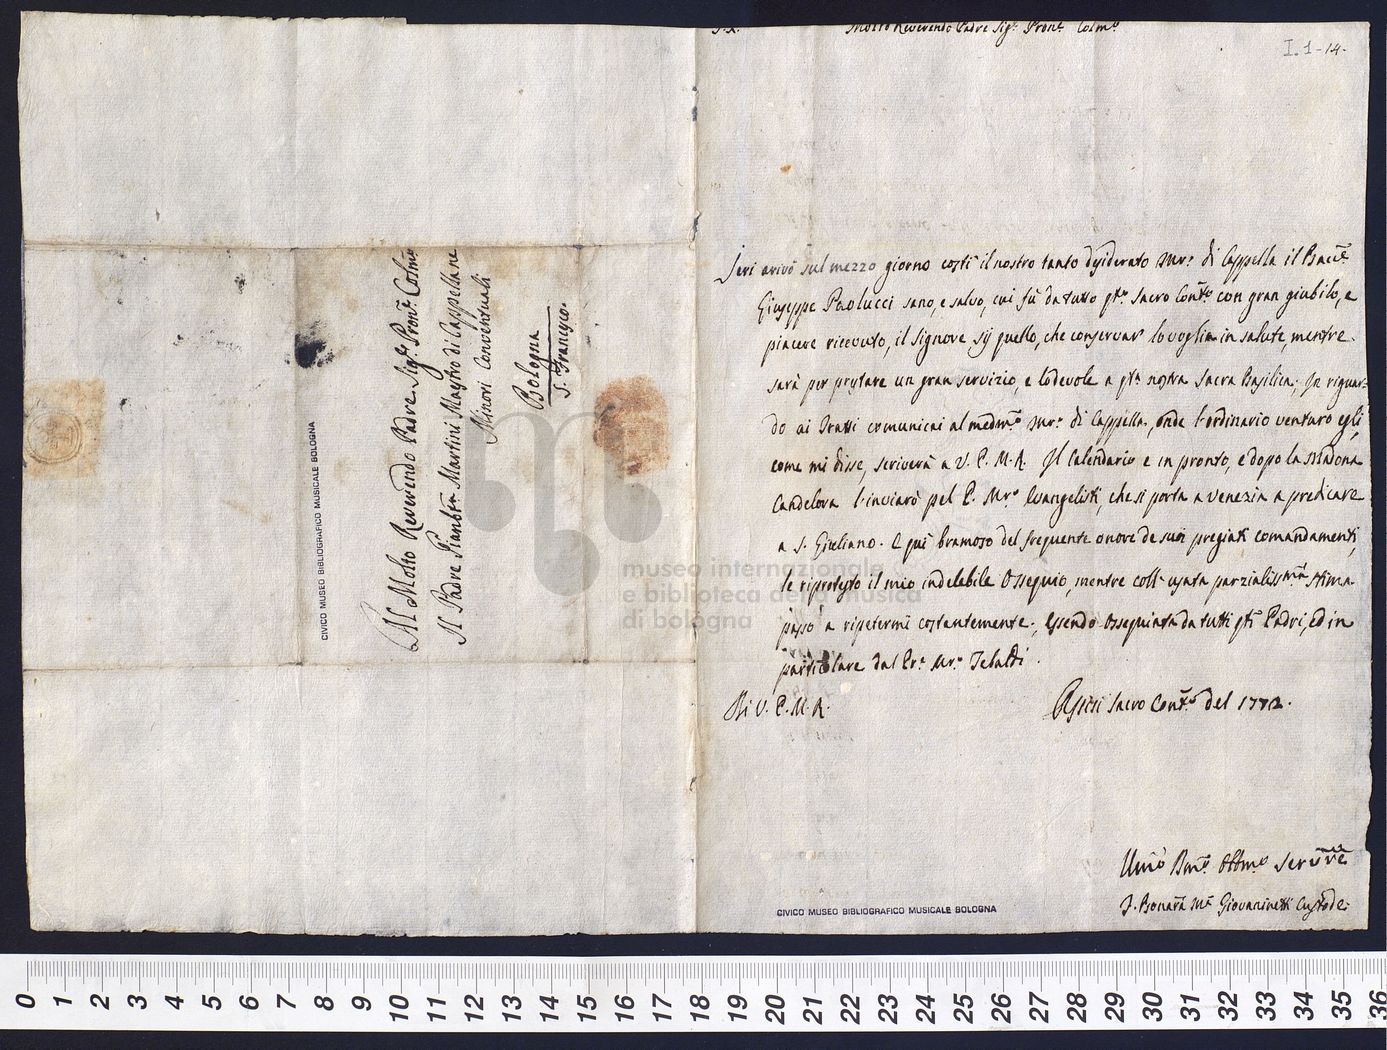 Al Molto Reverendo Padre Sigr. Pron.e Colmo
Il Padre Gianbtta Martini Maestro di Cappella ne
Minori Conventuali
Bologna
S. Francesco.
CIVICO MUSEO BIBLIOGRAFICO MUSICALE BOLOGNA
Molto Reverendo Padre Sigr. Pron.e Colmo
I.1-14-
Jeri arivò sul mezzo giorno costì il nostro tanto desiderato Mro. di Cappella il
Giuseppe Paolucci sano, e salvo, cui fù da tutto qto. Sacro Conto. con gran giubilo, e
piacere ricevuto, il Signore sij quello, che conservar lo voglia in salute, mentre
sarà per prestare un gran servizio, e lodevole a qta. nostra Sacra Basilica; In riguar-
do ai Tratti comunicai al medmo. Mro. di Cappella, onde l'ordinario venturo egli,
come mi disse, scriverà a V. P. M. R. Il Calendario e in pronto, e dopo la Madona
Candelora l'inviarò pel P. Mro. Evangelisti, che si porta a Venezia a predicare
a S. Giuliano. E quì bramoso del frequente onore de suoi pregiati comandamenti,
le riprotesto il mio indelebile Ossequio, mentre coll' usata parzialissma stima
passo a ripetermi costantemente; Essendo Ossequiata da tutti qti. Padri, ed in
particolare dal Pre. Mro. Tebaldi.
Di V. P. M. R.
Assisi Sacro Conto. del 1772.
Umo. Obbmo. Servre
F. Bonava. Ma. Giovaninetti Custode
CIVICO MUSEO BIBLIOGRAFICO MUSICALE BOLOGNA
museo internazionale
e biblioteca della musica
di bologna
0 1 2 3 4 5 6 7 8 9 10 11 12 13 14 15 16 17 18 19 20 21 22 23 24 25 26 27 28 29 30 31 32 33 34 35 36